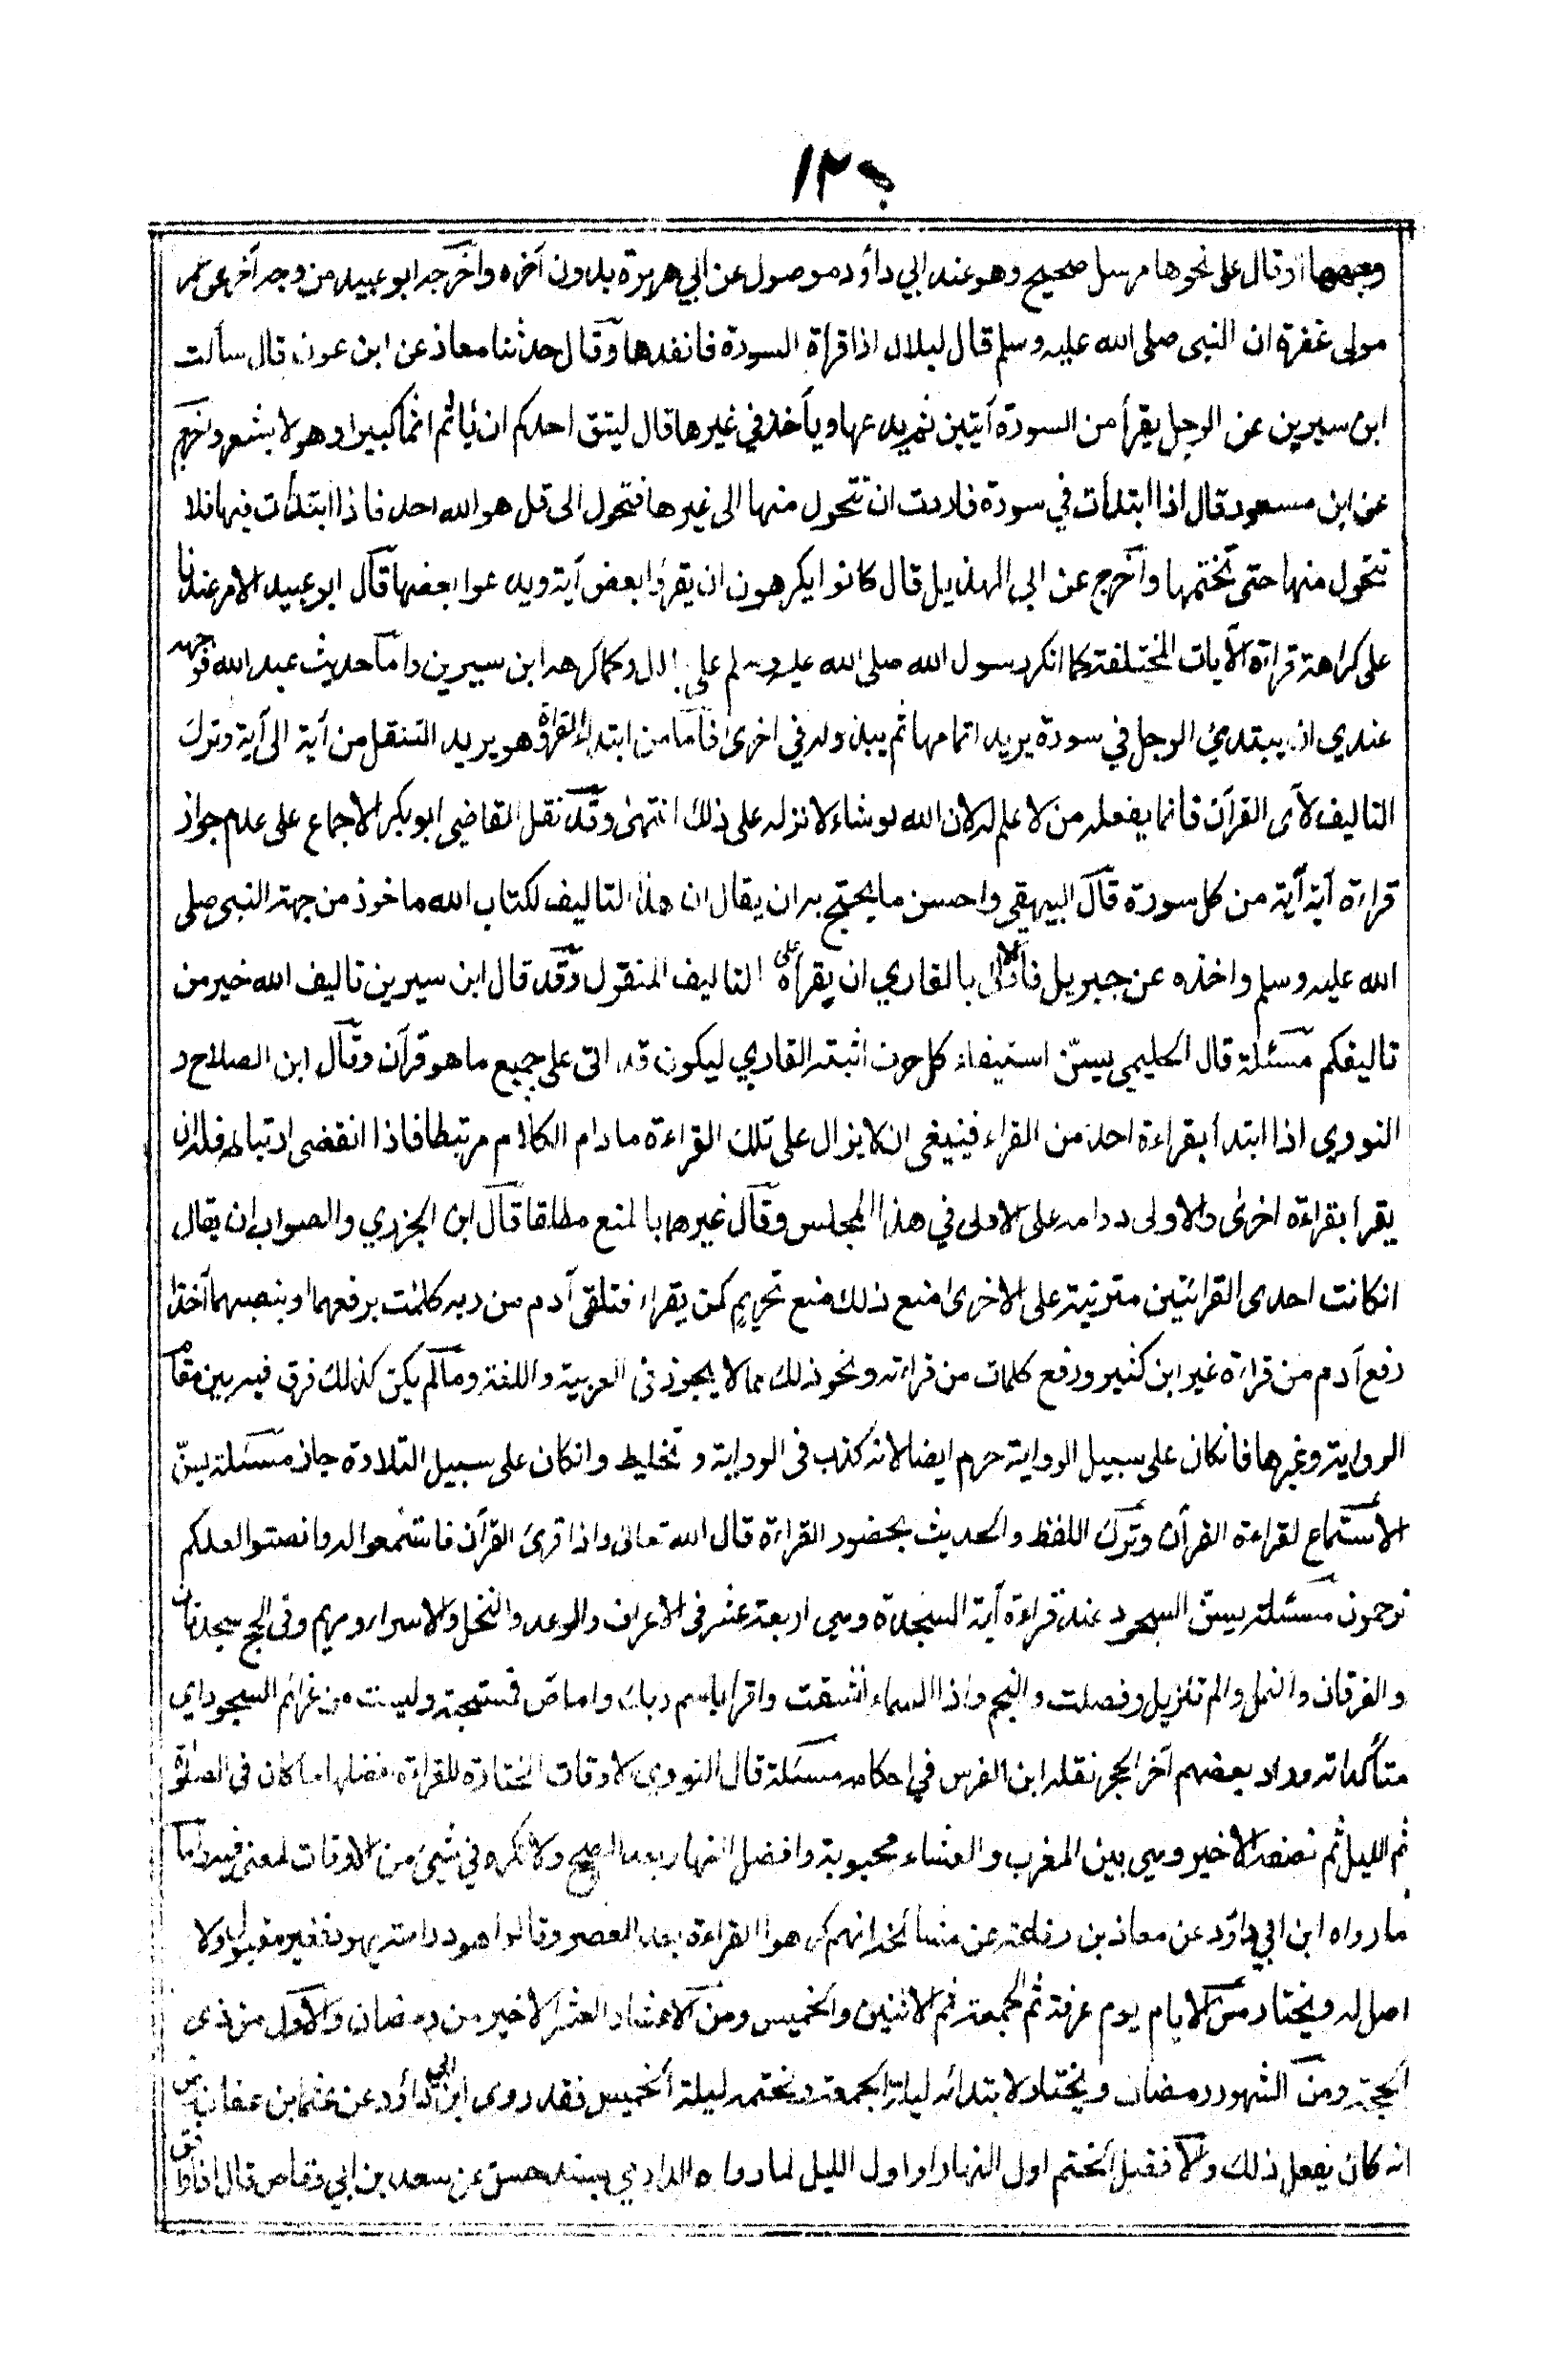 ١٢٠
وجهها او قال على نحوها مرسل صحيح وهو عند ابي داؤد موصول عن ابي هريرة بدون آخره واخرجه ابو عبيد من وجه آخر عن عمر
مولى غفرة ان النبى صلى الله عليه وسلم قال لبلال اذا قرأة السورة فانفدها وقال حدثنا معاذ عن ابن عون قال سألت
ابن سيرين عن الرجل يقرأ من السورة آيتين ثم يدعها ويأخذ في غيرها قال ليتق احدكم ان يأثم اثما كبيرا وهو لا يشعر واخرج
عن ابن مسعود قال اذا ابتدأت في سورة فاردت ان تتحول منها الى غيرها فتحول الى قل هو الله احد فاذا ابتدأت فيها فلا
تتحول منها حتى تختمها وآخرج عن ابى الهذيل قال كانوا يكرهون ان يقرؤا بعض آية ويدعوا بعضها قال ابو عبيد الامر عندنا
على كراهة قراءة الآيات المختلفة كما انكر رسول الله صلى الله عليه وسلم على بلال وكما كرهه ابن سيرين واما حديث عبد الله فوجهه
عندي ان يبتدئ الرجل في سورة يريد اتمامها ثم يبدو له في اخرى فاما من ابتدأ القراءة وهو يريد التنقل من آية الى آية وترك
التاليف لآى القرآن فانما يفعله من لا علم له لان الله لو شاء لانزله على ذلك انتهى وقد نقل القاضي ابو بكر الاجماع على عدم جواز
قراءة آية آية من كل سورة قال البيهقي واحسن ما يحتج به ان يقال ان هذا التاليف لكتاب الله ماخوذ من جهة النبى صلى
الله عليه وسلم واخذه عن جبريل فالاولى بالقاري ان يقرأه على التاليف المنقول وقد قال ابن سيرين تاليف الله خير من
تاليفكم مسئلة قال الحليمي يسن استيفاء كل حرف اثبته القاري ليكون قد اتى على جميع ما هو قرآن وقال ابن الصلاح و
النووي اذا ابتدأ بقراءة احد من القراء فينبغى ان لا يزال على تلك القراءة ما دام الكلام مرتبطا فاذا انقضى ارتباطه فله ان
يقرأ بقراءة اخرى والاولى دوامه على الاولى في هذا المجلس وقال غيرهما بالمنع مطلقا قال ابن الجزري والصواب ان يقال
انكانت احدى القرائتين مترتبة على الاخرى منع ذلك منع تحريم كمن يقراء فتلقى آدم من ربه كلمت برفعهما او بنصبهما آخذا
رفع آدم من قراءة غير ابن كثير ورفع كلمات من قراءته ونحو ذلك مما لا يجوز فى العربية واللغة وما لم يكن كذلك فرق فيه بين مقام
الرواية وغيرها فانكان على سبيل الرواية حرم ايضا لانه كذب فى الرواية وتخليط وانكان على سبيل التلاوة جاز مسئلة يسن
الاستماع لقراءة القرآن وترك اللغط والحديث بحضور القراءة قال الله تعالى واذا قرئ القرآن فاستمعوا له وانصتوا لعلكم
ترحمون مسئلة يسن السجود عند قراءة آية السجدة وهي اربعة عشر فى الاعراف والرعد والنحل والاسراء ومريم وفى الحج سجدتان
والفرقان والنمل والم تنزيل وفصلت والنجم واذا السماء انشقت واقرأ باسم ربك واما ص فمستحبة وليست من عزائم السجود اي
متأكداته وزاد بعضهم آخر الحجر نقله ابن الفرس في احكامه مسئلة قال النووي الاوقات المختارة للقراءة افضلها ما كان فى الصلوة
ثم الليل ثم نصفه الاخير وهي بين المغرب والعشاء محبوبة وافضل النهار بعد الصبح ولا تكره في شيئ من الاوقات لمعنى فيه واما
ما رواه ابن ابي داؤد عن معاذ بن رفاعة عن مشائخه انهم كرهوا القراءة بعد العصر وقالوا هو دراسة يهود فغير مقبول ولا
اصل له ويختار من الايام يوم عرفة ثم الجمعة ثم الاثنين والخميس ومن الاعشار العشر الاخير من رمضان والاول من ذى
الحجة ومن الشهور رمضان ويختار لابتدائه ليلة الجمعة ولختمه ليلة الخميس فقد روى ابن ابي داؤد عن عثمان بن عفان
انه كان يفعل ذلك والا فقبل الختم اول النهار او اول الليل لما رواه الدارمي بسند حسن عن سعد بن ابي وقاص قال اذا وافق